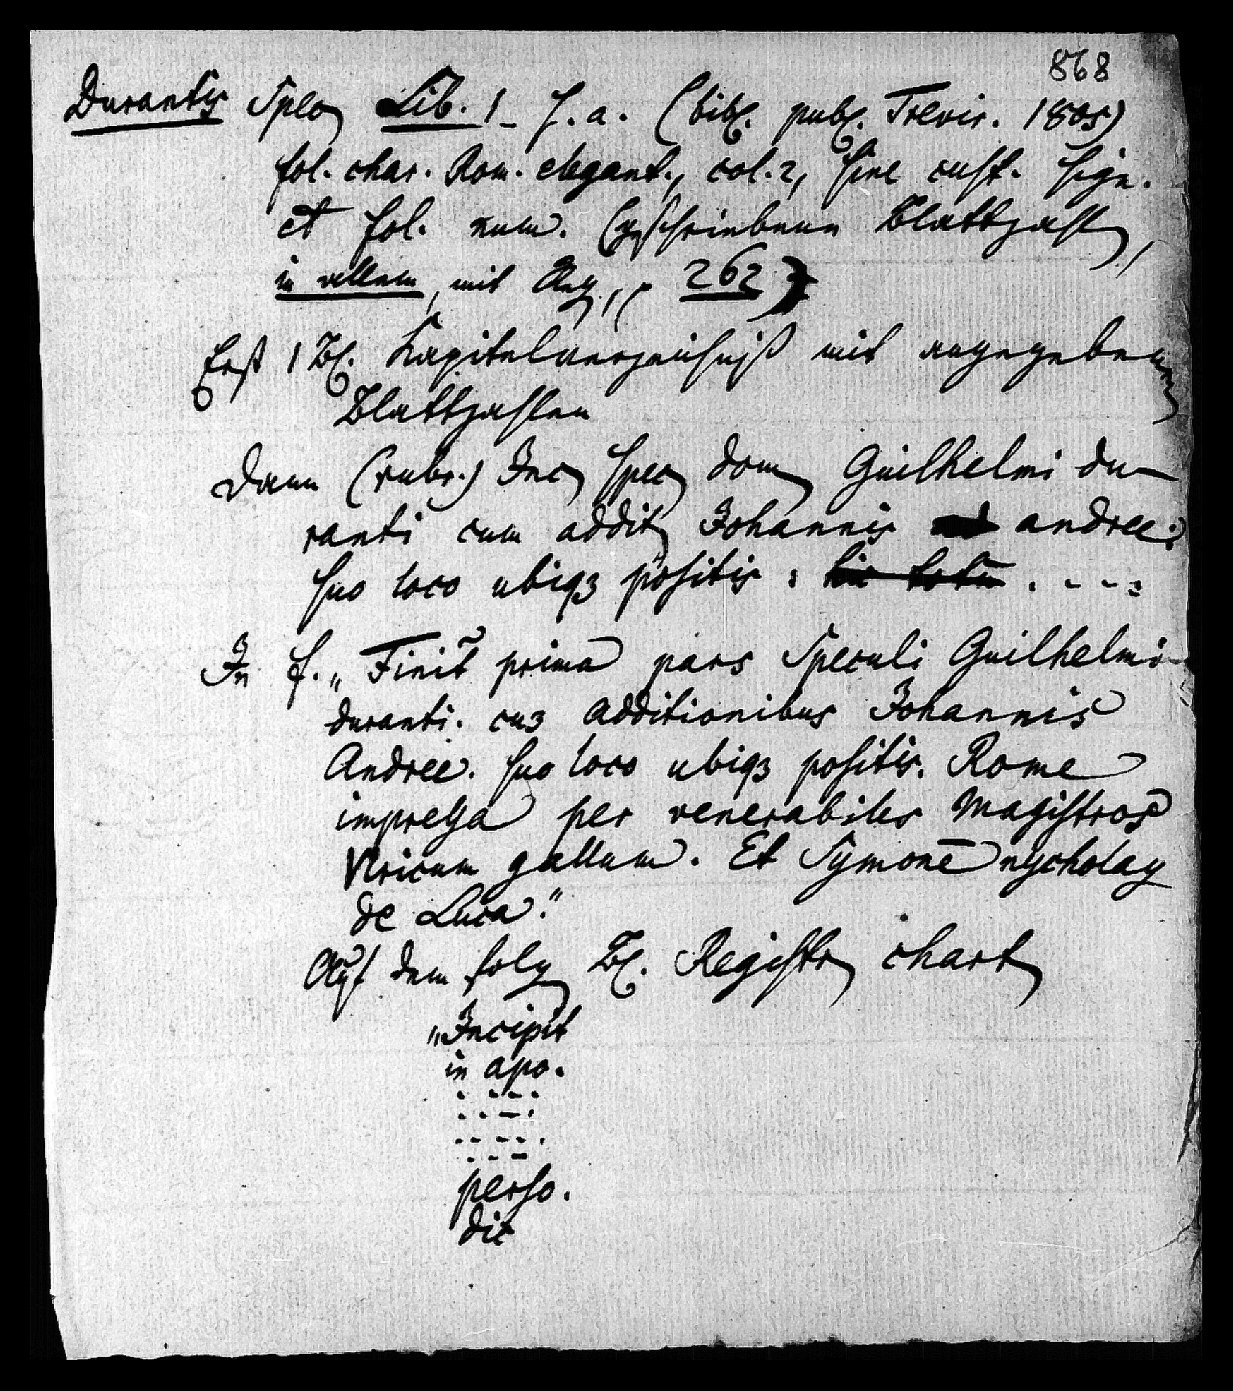 868
Durantis Spec Lib. 1_ s. a. (bibl. publ. Trevir. 1805)
fol. char. Rom. elegant., col. 2, sine cust. sign.
et fol. num. (geschriebene Blattzahl,
in allem, mit Reg., 262)
Erst 1 Bl. Kapitelverzeichniß mit angegebenen
Blattzahlen
Dann (rubr.) Inc spec dom Guilhelmi du-
ranti cum addit Johannis andree:
suo loco ubiqꝫ positis : hic totū . - - - :
In f. „Finit prima pars Speculi Guilhelmi
duranti. cuꝫ additionibus Johannis
Andree. suo loco ubiqꝫ positis. Rome
impressa per venerabiles Magistros
Vlricum gallum. Et Symonē nycholay
de Luca."
Auf dem folg Bl. Registr chart
„Incipit
in apo.
perso.
dic